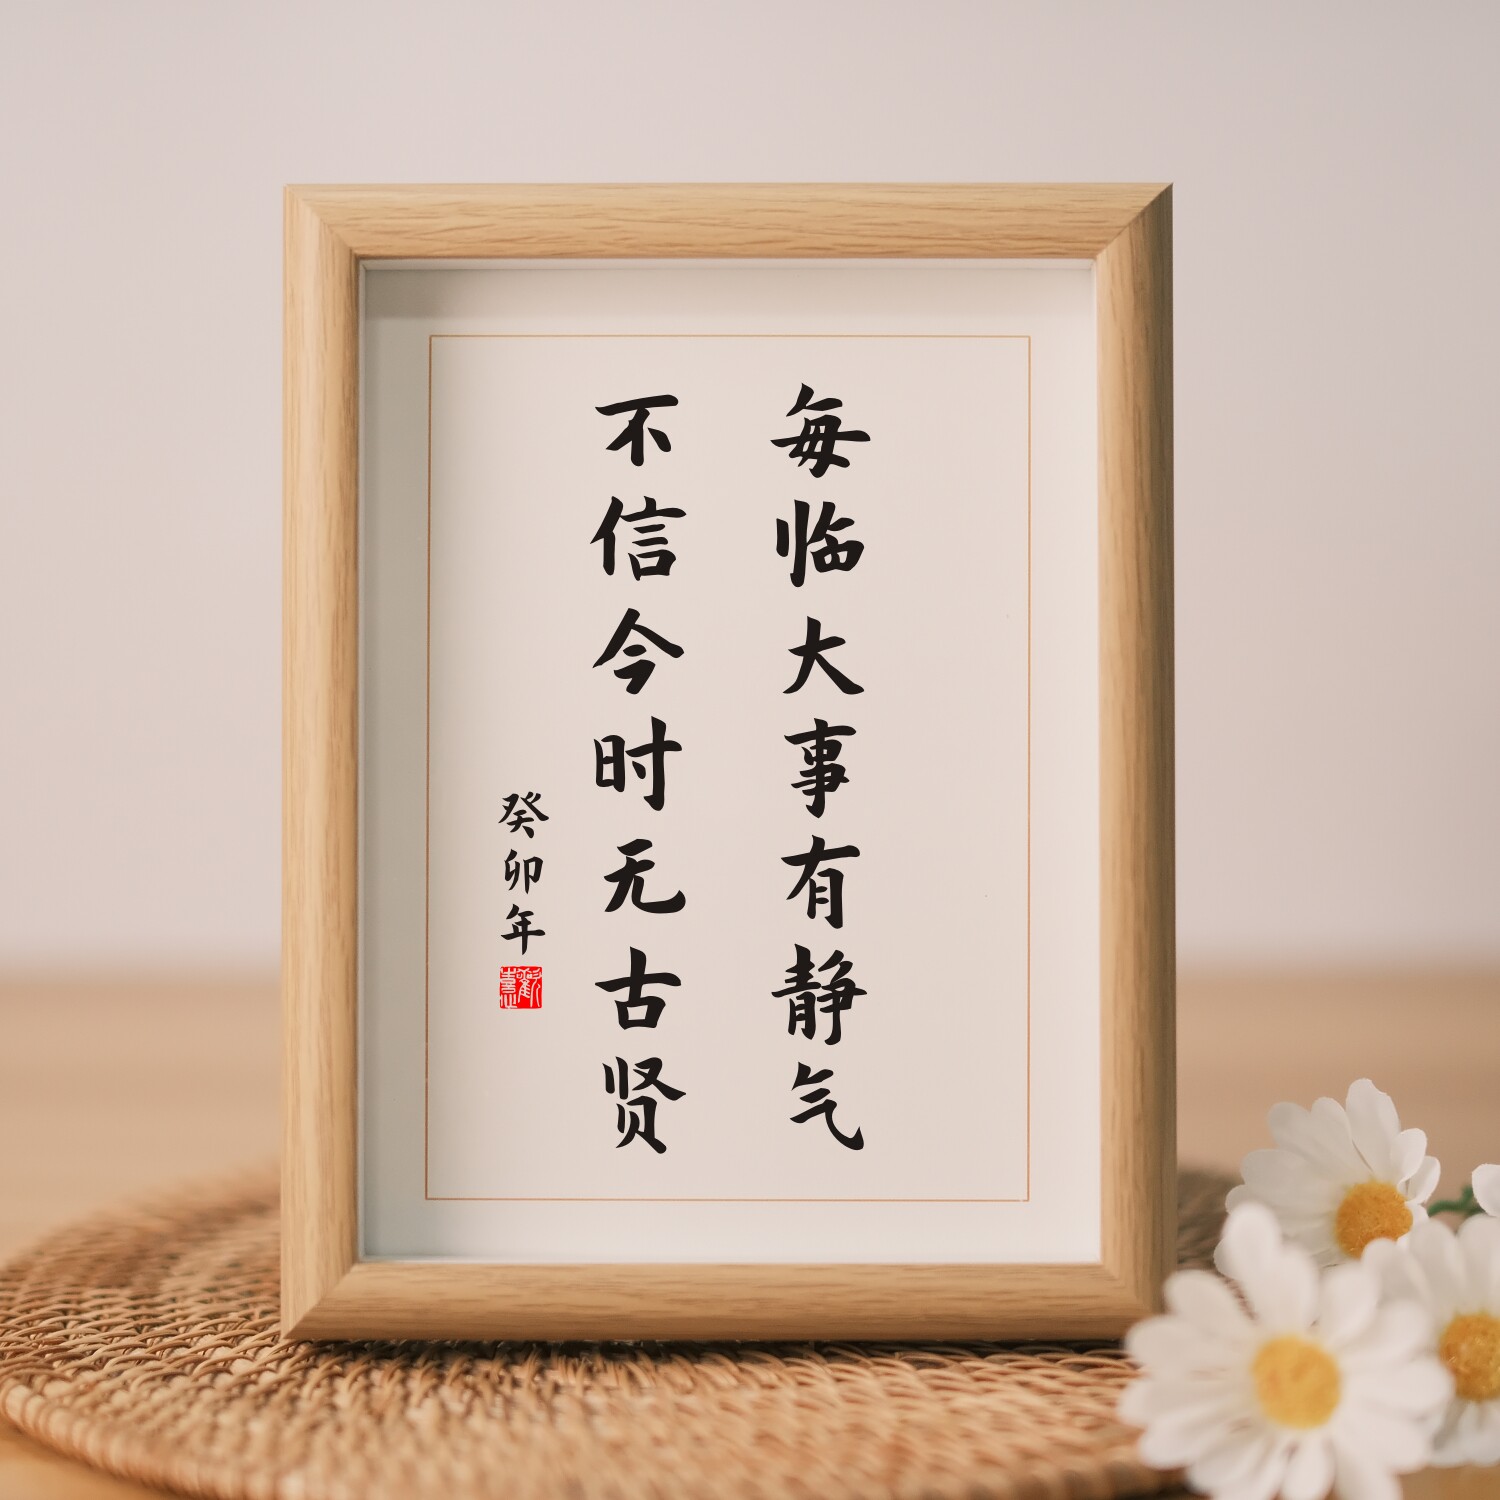 每临大事有静气
不信今时无古贤
癸卯年